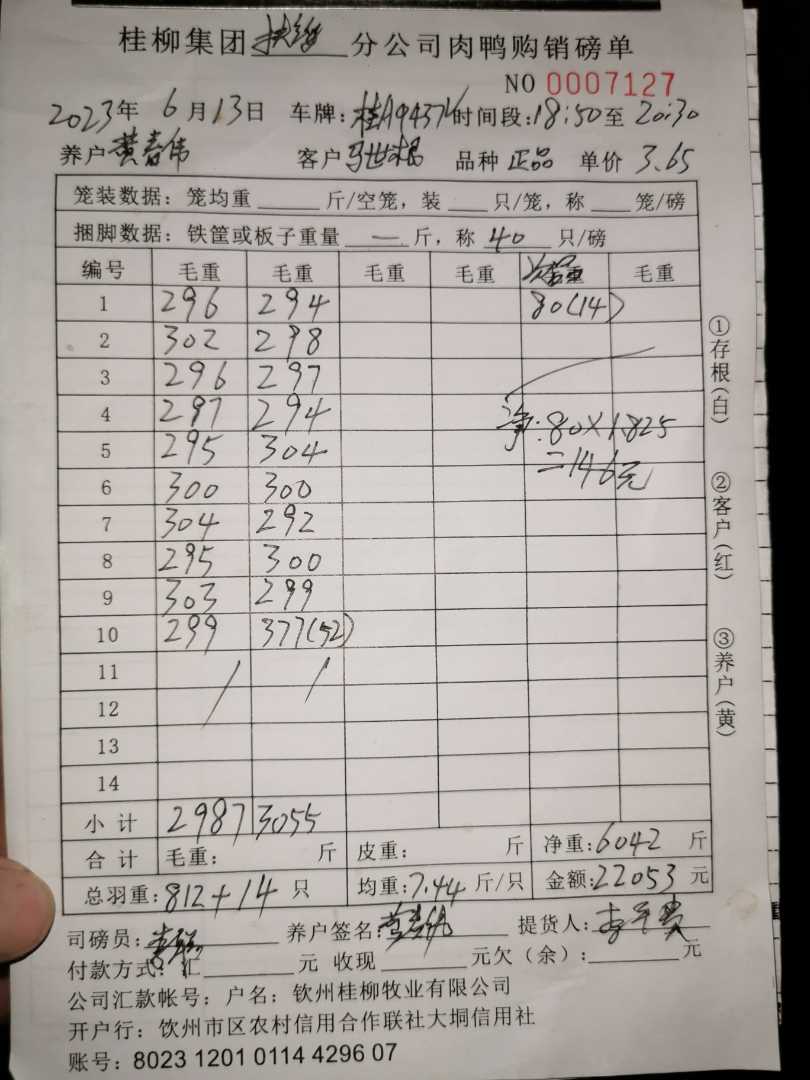 桂柳集团扶绥分公司肉鸭购销磅单
NO 0007127
2023年 6月13日 车牌:桂A9437V 时间段:18:50至 20:30
养户 黄春伟 客户 马世根 品种 正品 单价 3.65
笼装数据: 笼均重 斤/空笼, 装 只/笼, 称 笼/磅
捆脚数据: 铁筐或板子重量 — 斤, 称 40 只/磅
编号 毛重 毛重 毛重 毛重 毛重
1 296 294 80(14)
2 302 298
3 296 297
4 297 294 净:80×1.825
5 295 304 =146元
6 300 300
7 304 292
8 295 300
9 303 299
10 299 377(52)
11
12
13
14
小计 2987 3055
合计 毛重: 斤 皮重: 斤 净重:6042 斤
总羽重:812+14 只 均重:7.44 斤/只 金额:22053 元
司磅员: 养户签名:黄春伟 提货人:
付款方式: 汇 元 收现 元欠(余): 元
公司汇款帐号: 户名: 钦州桂柳牧业有限公司
开户行: 饮州市区农村信用合作联社大垌信用社
账号: 8023 1201 0114 4296 07
①存根(白)
②客户(红)
③养户(黄)